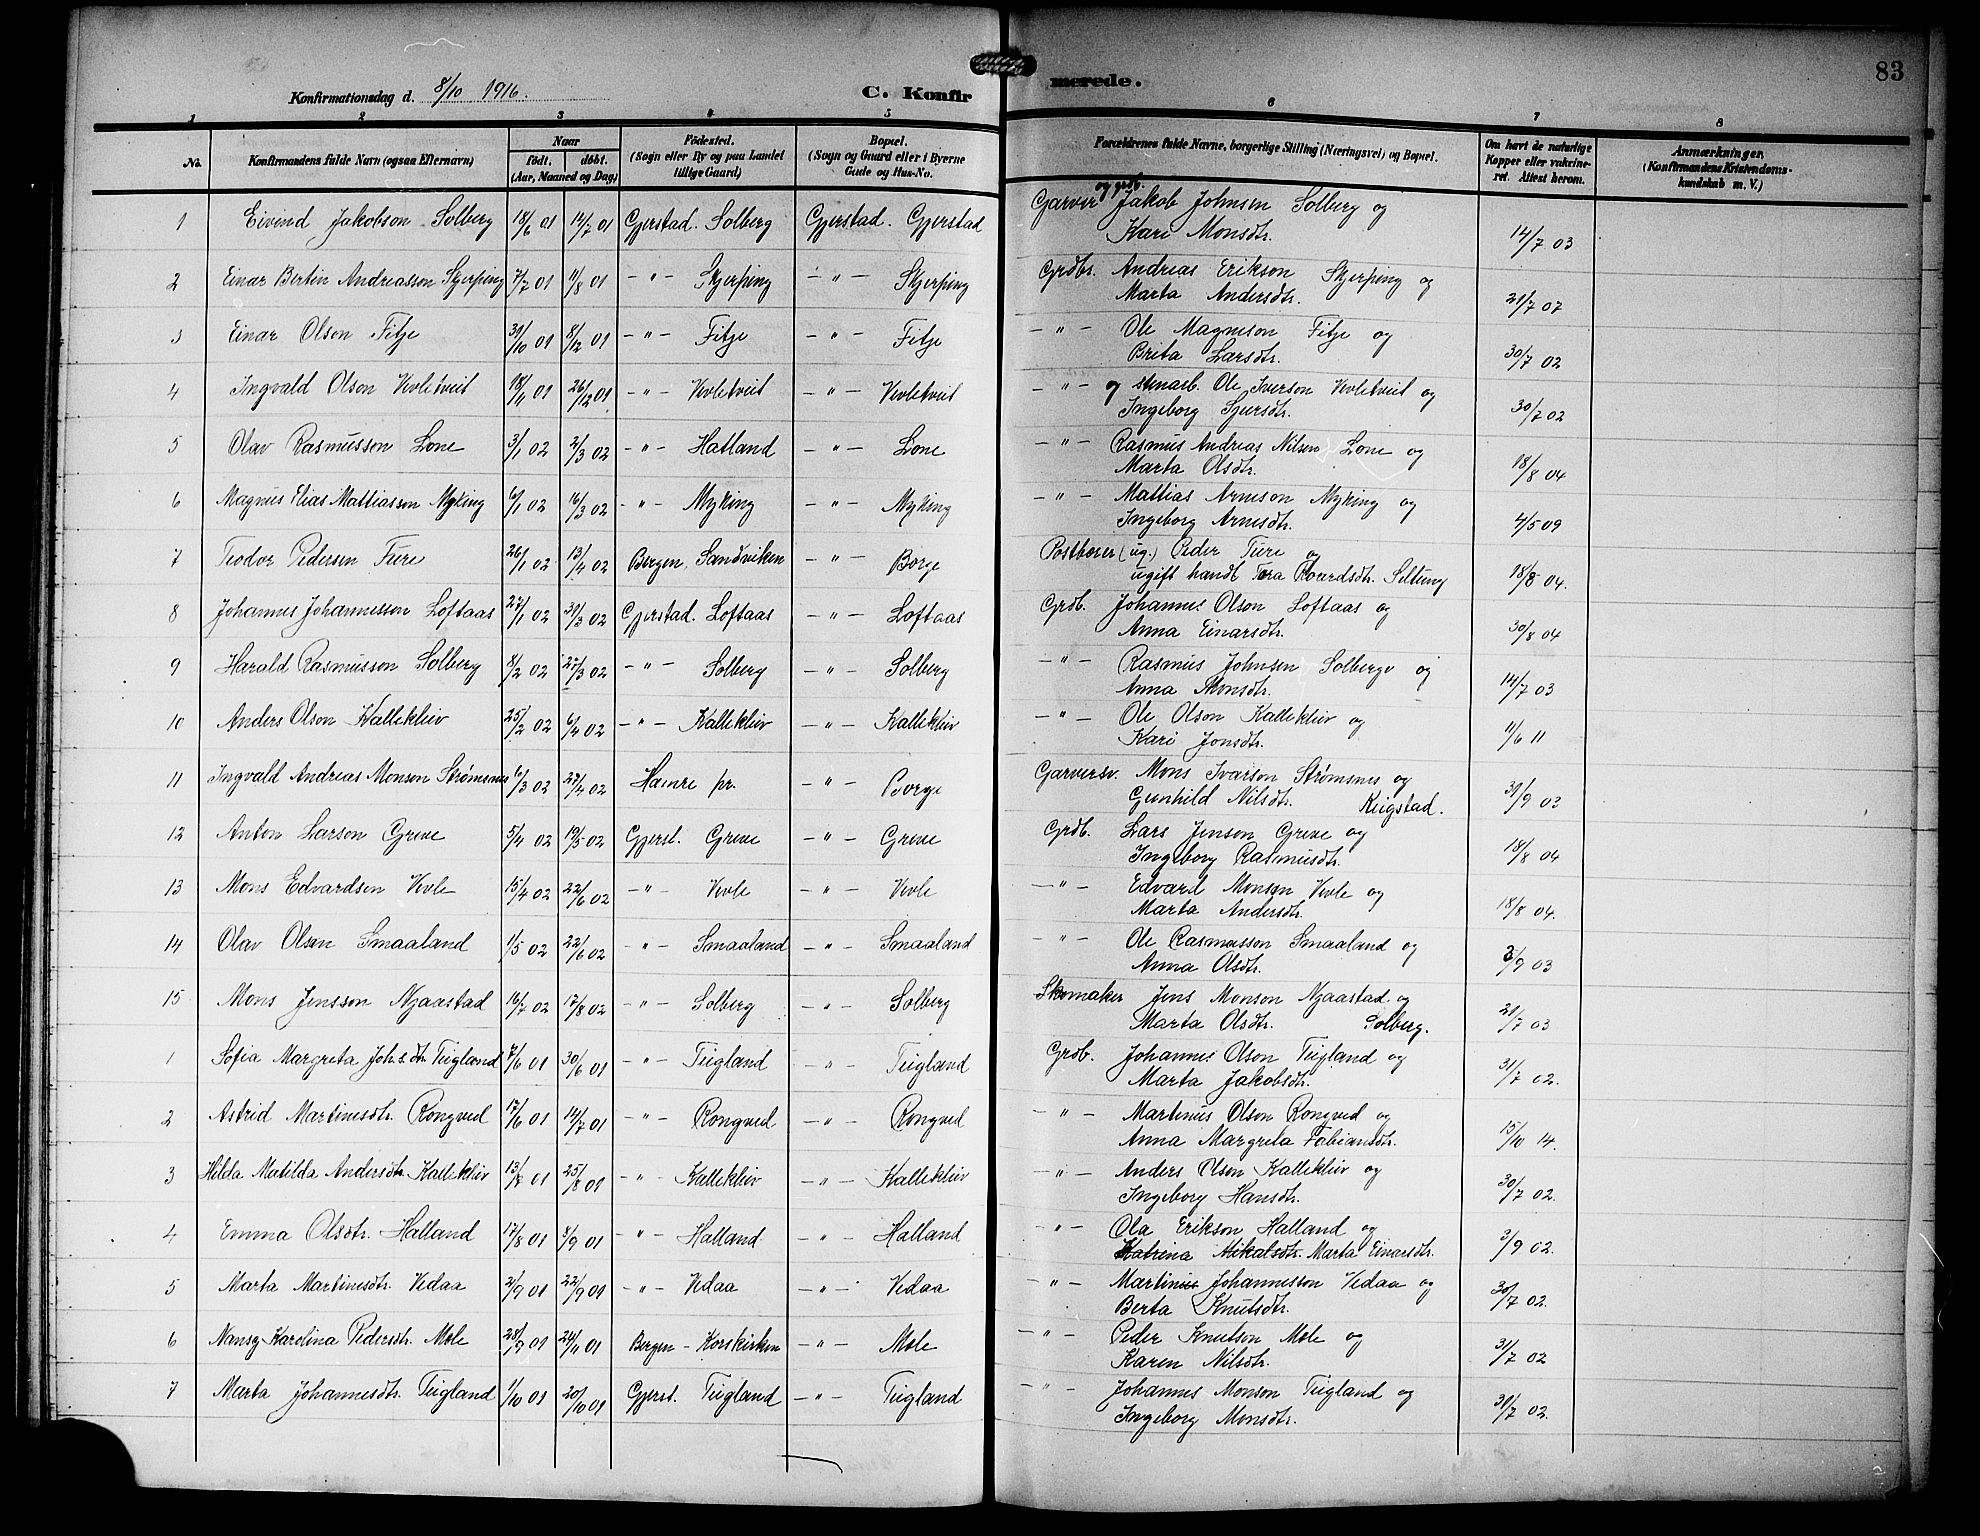 83
Konfirmationsdag d. 8/10 1916.
C. Konfirmerede.
1 2 3 4 5 6 7 8
No. Konfirmandens fulde Navn (ogsaa Efternavn) Naar födt. döbt. (Aar, Maaned og Dag) Födested. (Sogn eller By og paa Landet tillige Gaard) Bopæl. (Sogn og Gaard eller i Byerne Gade og Hus-No. Forældrenes fulde Navne, borgerlige Stilling (Næringsvei) og Bopæl. Om havt de naturlige Kopper eller vakcineret. Attest herom. Anmærkninger. (Konfirmandens Kristendomskundskab m. V.)
1 Eivind Jakobson Solberg 18/6 01 14/7 01 Gjerstad. Solberg Gjerstad. Gjerstad Garver og grdb. Jakob Johnsen Solberg og
Kari Monsdtr. 14/7 03
2 Einar Bertin Andreasson Skjerping 7/7 01 11/8 01 -"- Skjerping -"- Skjerping Grdbr. Andreas Erikson Skjerping og
Marta Andersdtr. 21/7 07
3 Einar Olson Fitje 31/10 01 8/12 01 -"- Fitje -"- Fitje -"- Ole Magneson Fitje og
Brita Larsdtr. 30/7 02
4 Ingvald Olson Vevletveit 18/11 01 26/12 01 -"- Vevletveit -"- Vevletveit -"- og stenarb. Ole Iverson Vevletveit og
Ingeborg Sjursdtr. 30/7 02
5 Olav Rasmusson Lone 3/1 02 2/3 02 -"- Hatland -"- Lone -"- Rasmus Andreas Nilsen Lone og
Marta Olsdtr. 18/8 04
6 Magnus Elias Mattiasson Myking 6/1 02 16/3 02 -"- Myking -"- Myking -"- Mattias Arneson Myking og
Ingeborg Arnesdtr. 4/5 09
7 Teodor Pedersen Fure 26/1 02 13/4 02 Bergen, Sandviken -"- Borge Postbærer (ug.) Peder Fure og
ugift handl. Tora 18/8 04.
8 Johannes Johannesson Loftaas 27/1 02 31/3 02 Gjerstad. Loftaas -"- Loftaas Grdb. Johannes Olson Loftaas og
Anna Einarsdtr. 30/8 04
9 Harald Rasmusson Solberg 8/2 02 27/3 02 -"- Solberg -"- Solberg -"- Rasmus Johnsen Solberg og
Anna Monsdtr. 14/7 03
10 Anders Olson Kallekleiv 25/2 02 6/4 02 -"- Kallekleiv -"- Kallekleiv -"- Ole Olson Kallekleiv og
Kari Jonsdtr. 11/6 11
11 Ingvald Andreas Monsen Strømsnes 6/3 02 27/4 02 Hamre pr. -"- Borge Garversv. Mons Ivarson Strømsnes og
Gunhild Nilsdtr. Reigstad. 31/9 03
12 Anton Larson Greve 5/4 02 19/5 02 Gjerst. Greve -"- Greve Grdb. Lars Jenson Greve og
Ingeborg Rasmusdtr. 18/8 04
13 Mons Edvardsen Vevle 15/4 02 22/6 02 -"- Vevle -"- Vevle -"- Edvard Monsen Vevle og
Marta Andersdtr. 18/8 04.
14 Olav Olson Smaaland 1/5 02 22/6 02 -"- Smaaland -"- Smaaland -"- Ole Rasmusson Smaaland og
Anna Olsdtr. 3/9 03
15 Mons Jensson Njaastad 16/7 02 17/8 02 -"- Solberg -"- Solberg Skomaker Jens Monson Njaastad og
Marta Olsdtr. Solberg. 21/7 03
1 Sofia Margreta Joh.s.dtr. Tugland 7/6 01 30/6 01 -"- Tugland -"- Tugland Grdb. Johannes Olson Tugland og
Marta Jakobsdtr. 31/7 02.
2 Astrid Martinesdtr. Rongved 17/6 01 14/7 01 -"- Rongved -"- Rongved -"- Martinus Olson Rongved og
Anna Margreta Fabiansdtr. 15/10 14.
3 Hilda Matilda Andersdtr. Kallekleiv 13/8 01 25/8 01 -"- Kallekleiv -"- Kallekleiv "- Anders Olson Kallekleiv og
Ingeborg Hansdtr. 30/7 02.
4 Emma Olsdtr. Halland 17/8 01 8/9 01 -"- Halland -"- Halland "- Ola Erikson Halland og
Katrina Mikalsdtr. Marta Einarsdtr. 3/9 02.
5 Marta Martinesdtr. Vedaa 2/9 01 22/9 01 -"- Vedaa -"- Vedaa "- Martinus Johannesson Vedaa og
Berta Knutsdtr. 30/7 02.
6 Nansy Karolina Pedersdtr. Mole 28/9 01 24/11 01 Bergen - Korskirken -"- Mole -"- Peder Knutson Mole og
Karen Nilsdtr. 31/7 02
7 Marta Johannesdtr. Tugland 1/10 01 20/10 01 Gjerst. Tugland -"- Tugland -"- Johannes Monson Tugland og
Ingeborg Monsdtr. 31/7 02.